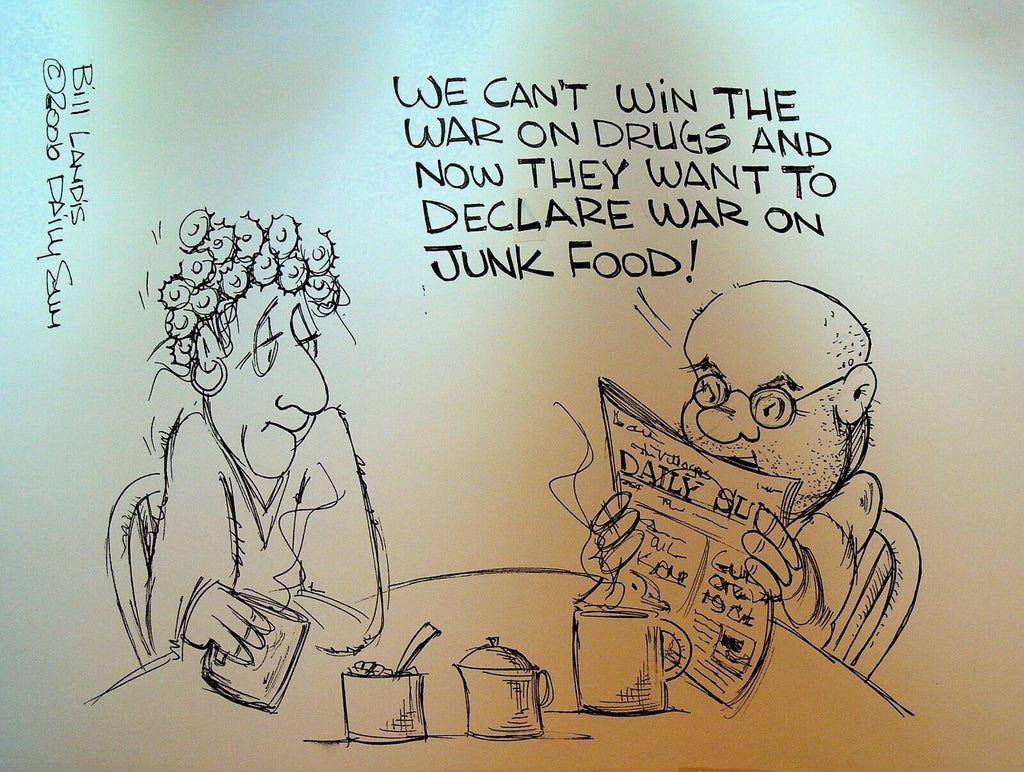 Bill LANDIS
©2006 DAILY SUN
WE CAN'T WIN THE
WAR ON DRUGS AND
NOW THEY WANT TO
DECLARE WAR ON
JUNK FOOD!
DAILY SU